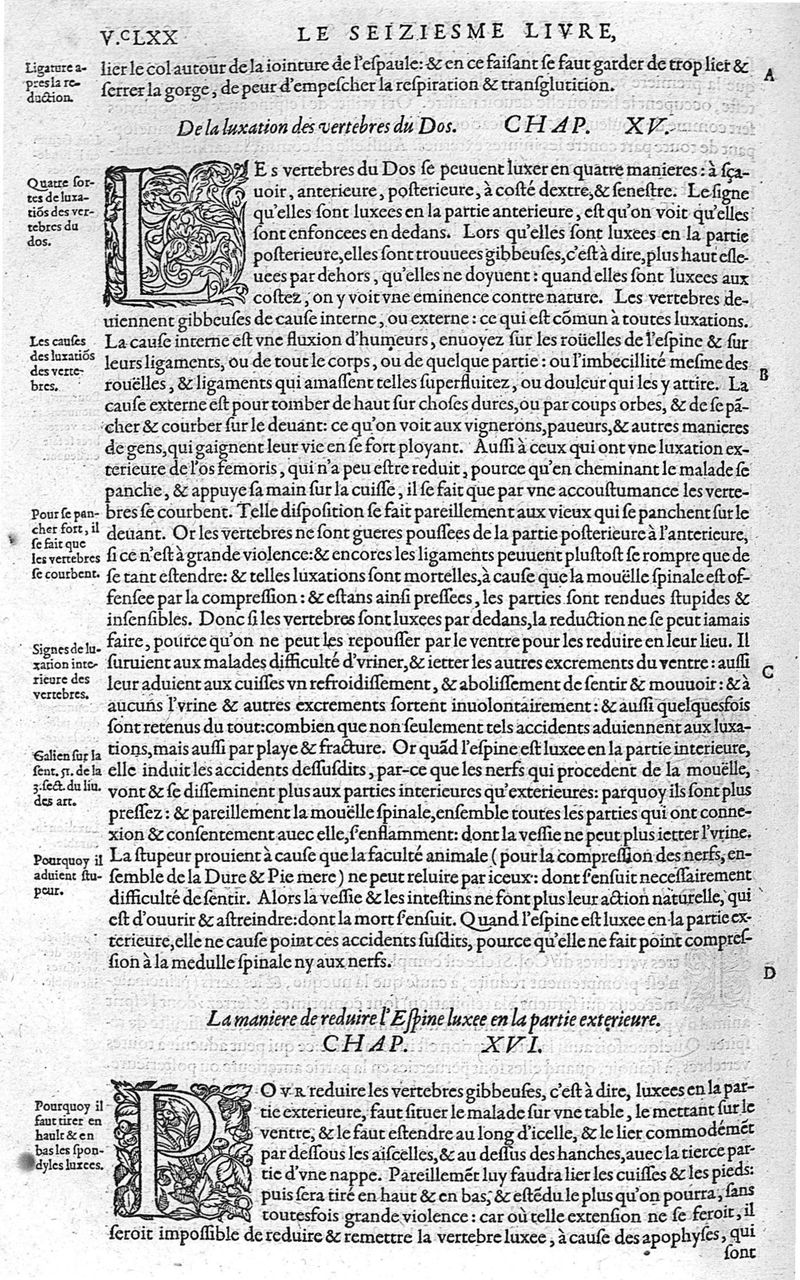 V.CLXX LE SEIZIESME LIVRE,
Ligature a-
pres la re-
duction.
lier le col autour de la iointure de l'eſpaule: & en ce faiſant ſe faut garder de trop lier &
ſerrer la gorge, de peur d'empeſcher la reſpiration & tranſglutition.
A
De la luxation des vertebres du Dos. CHAP. XV.
Quatre ſor-
tes de luxa-
tiõs des ver-
tebres du
dos.
LEs vertebres du Dos ſe peuuent luxer en quatre manieres: à ſça-
uoir, anterieure, poſterieure, à coſté dextre, & ſeneſtre. Le ſigne
qu'elles ſont luxees en la partie anterieure, eſt qu'on voit qu'elles
ſont enfoncees en dedans. Lors qu'elles ſont luxees en la partie
poſterieure, elles ſont trouuees gibbeuſes, c'eſt à dire, plus haut eſle-
uees par dehors, qu'elles ne doyuent: quand elles ſont luxees aux
coſtez, on y voit vne eminence contre nature. Les vertebres de-
uiennent gibbeuſes de cauſe interne, ou externe: ce qui eſt cõmun à toutes luxations.
Les cauſes
des luxatiõs
des verte-
bres.
La cauſe interne eſt vne fluxion d'humeurs, enuoyez ſur les roüelles de l'eſpine & ſur
leurs ligaments, ou de tout le corps, ou de quelque partie: ou l'imbecillité meſme des
B
rouëlles, & ligaments qui amaſſent telles ſuperfluitez, ou douleur qui les y attire. La
cauſe externe eſt pour tomber de haut ſur choſes dures, ou par coups orbes, & de ſe pã-
cher & courber ſur le deuant: ce qu'on voit aux vignerons, paueurs, & autres manieres
de gens, qui gaignent leur vie en ſe fort ployant. Auſſi à ceux qui ont vne luxation ex-
terieure de l'os femoris, qui n'a peu eſtre reduit, pource qu'en cheminant le malade ſe
panche, & appuye ſa main ſur la cuiſſe, il ſe fait que par vne accouſtumance les verte-
Pour ſe pan-
cher fort, il
ſe fait que
les vertebres
ſe courbent.
bres ſe courbent. Telle diſpoſition ſe fait pareillement aux vieux qui ſe panchent ſur le
deuant. Or les vertebres ne ſont gueres pouſſees de la partie poſterieure à l'anterieure,
ſi ce n'eſt à grande violence: & encores les ligaments peuuent pluſtoſt ſe rompre que de
ſe tant eſtendre: & telles luxations ſont mortelles, à cauſe que la mouëlle ſpinale eſt of-
fenſee par la compreſſion: & eſtans ainſi preſſees, les parties ſont rendues ſtupides &
inſenſibles. Donc ſi les vertebres ſont luxees par dedans, la reduction ne ſe peut iamais
Signes de lu-
xation inte-
rieure des
vertebres.
faire, pource qu'on ne peut les repouſſer par le ventre pour les reduire en leur lieu. Il
ſuruient aux malades difficulté d'vriner, & ietter les autres excrements du ventre: auſſi
C
leur aduient aux cuiſſes vn refroidiſſement, & aboliſſement de ſentir & mouuoir: & à
aucuns l'vrine & autres excrements ſortent inuolontairement: & auſſi quelquesfois
ſont retenus du tout: combien que non ſeulement tels accidents aduiennent aux luxa-
Galien ſur la
ſent. 51. de la
3. ſect. du liu.
des art.
tions, mais auſſi par playe & fracture. Or quãd l'eſpine eſt luxee en la partie interieure,
elle induit les accidents deſſuſdits, par-ce que les nerfs qui procedent de la mouëlle,
vont & ſe diſſeminent plus aux parties interieures qu'exterieures: parquoy ils ſont plus
preſſez: & pareillement la mouëlle ſpinale, enſemble toutes les parties qui ont conne-
xion & conſentement auec elle, ſ'enflamment: dont la veſſie ne peut plus ietter l'vrine.
Pourquoy il
aduient ſtu-
peur.
La ſtupeur prouient à cauſe que la faculté animale (pour la compreſſion des nerfs, en-
ſemble de la Dure & Pie mere) ne peut reluire par iceux: dont ſ'enſuit neceſſairement
difficulté de ſentir. Alors la veſſie & les inteſtins ne font plus leur action naturelle, qui
eſt d'ouurir & aſtreindre: dont la mort ſ'enſuit. Quand l'eſpine eſt luxee en la partie ex-
terieure, elle ne cauſe point ces accidents ſuſdits, pource qu'elle ne fait point compreſ-
ſion à la medulle ſpinale ny aux nerfs.
D
La maniere de reduire l'Eſpine luxee en la partie exterieure.
CHAP. XVI.
Pourquoy il
faut tirer en
hault & en
bas les ſpon-
dyles luxees.
POVR reduire les vertebres gibbeuſes, c'eſt à dire, luxees en la par-
tie exterieure, faut ſituer le malade ſur vne table, le mettant ſur le
ventre, & le faut eſtendre au long d'icelle, & le lier commodémẽt
par deſſous les aiſcelles, & au deſſus des hanches, auec la tierce par-
tie d'vne nappe. Pareillemẽt luy faudra lier les cuiſſes & les pieds:
puis ſera tiré en haut & en bas, & eſtẽdu le plus qu'on pourra, ſans
toutesfois grande violence: car où telle extenſion ne ſe feroit, il
ſeroit impoſſible de reduire & remettre la vertebre luxee, à cauſe des apophyſes, qui
ſont